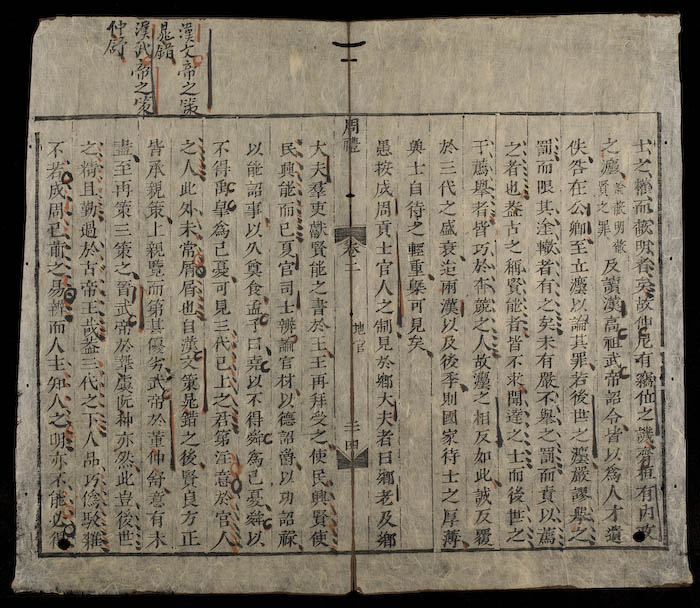 漢文帝之策
晁錯
漢武帝之策
仲舒
士之權而蔽明者矣故仲尼有竊位之譏齊桓有內政
之灋論蔽明蔽賢之罪反讀漢高祖武帝詔令皆以為人才遺
佚咎在公卿至立灋以論其罪若後世之灋嚴謬舉之
罰而限其塗轍者有之矣未有嚴不舉之罰而責以薦
之者也葢古之稱賢能者皆不求聞達之士而後世之
干薦舉者皆巧於奔競之人故灋之相反如此誠反覆
於三代之盛衰迨兩漢以及後季則國家待士之厚薄
與士自待之輕重槩可見矣
愚按成周貢士官人之制見於鄉大夫者曰鄉老及鄉
周禮
卷二
地官
三四
大夫羣吏獻賢能之書於王王再拜受之使民興賢使
民興能而已夏官司士辨論官材以德詔爵以功詔祿
以能詔事以久奠食孟子曰堯以不得舜為己憂舜以
不得禹臯為己憂可見三代已上之君第注意於官人
之人此外未常屑屑也自漢文策晁錯之後賢良方正
皆承親策上親覽而第其優劣武帝於董仲舒意有未
盡至再策三策之晉武帝於摯虞阮种亦然此豈後世
之精且勤過於古帝王哉葢三代之下人品巧偽駁雜
不若成周已前之易辨而人主知人之明亦不能必得